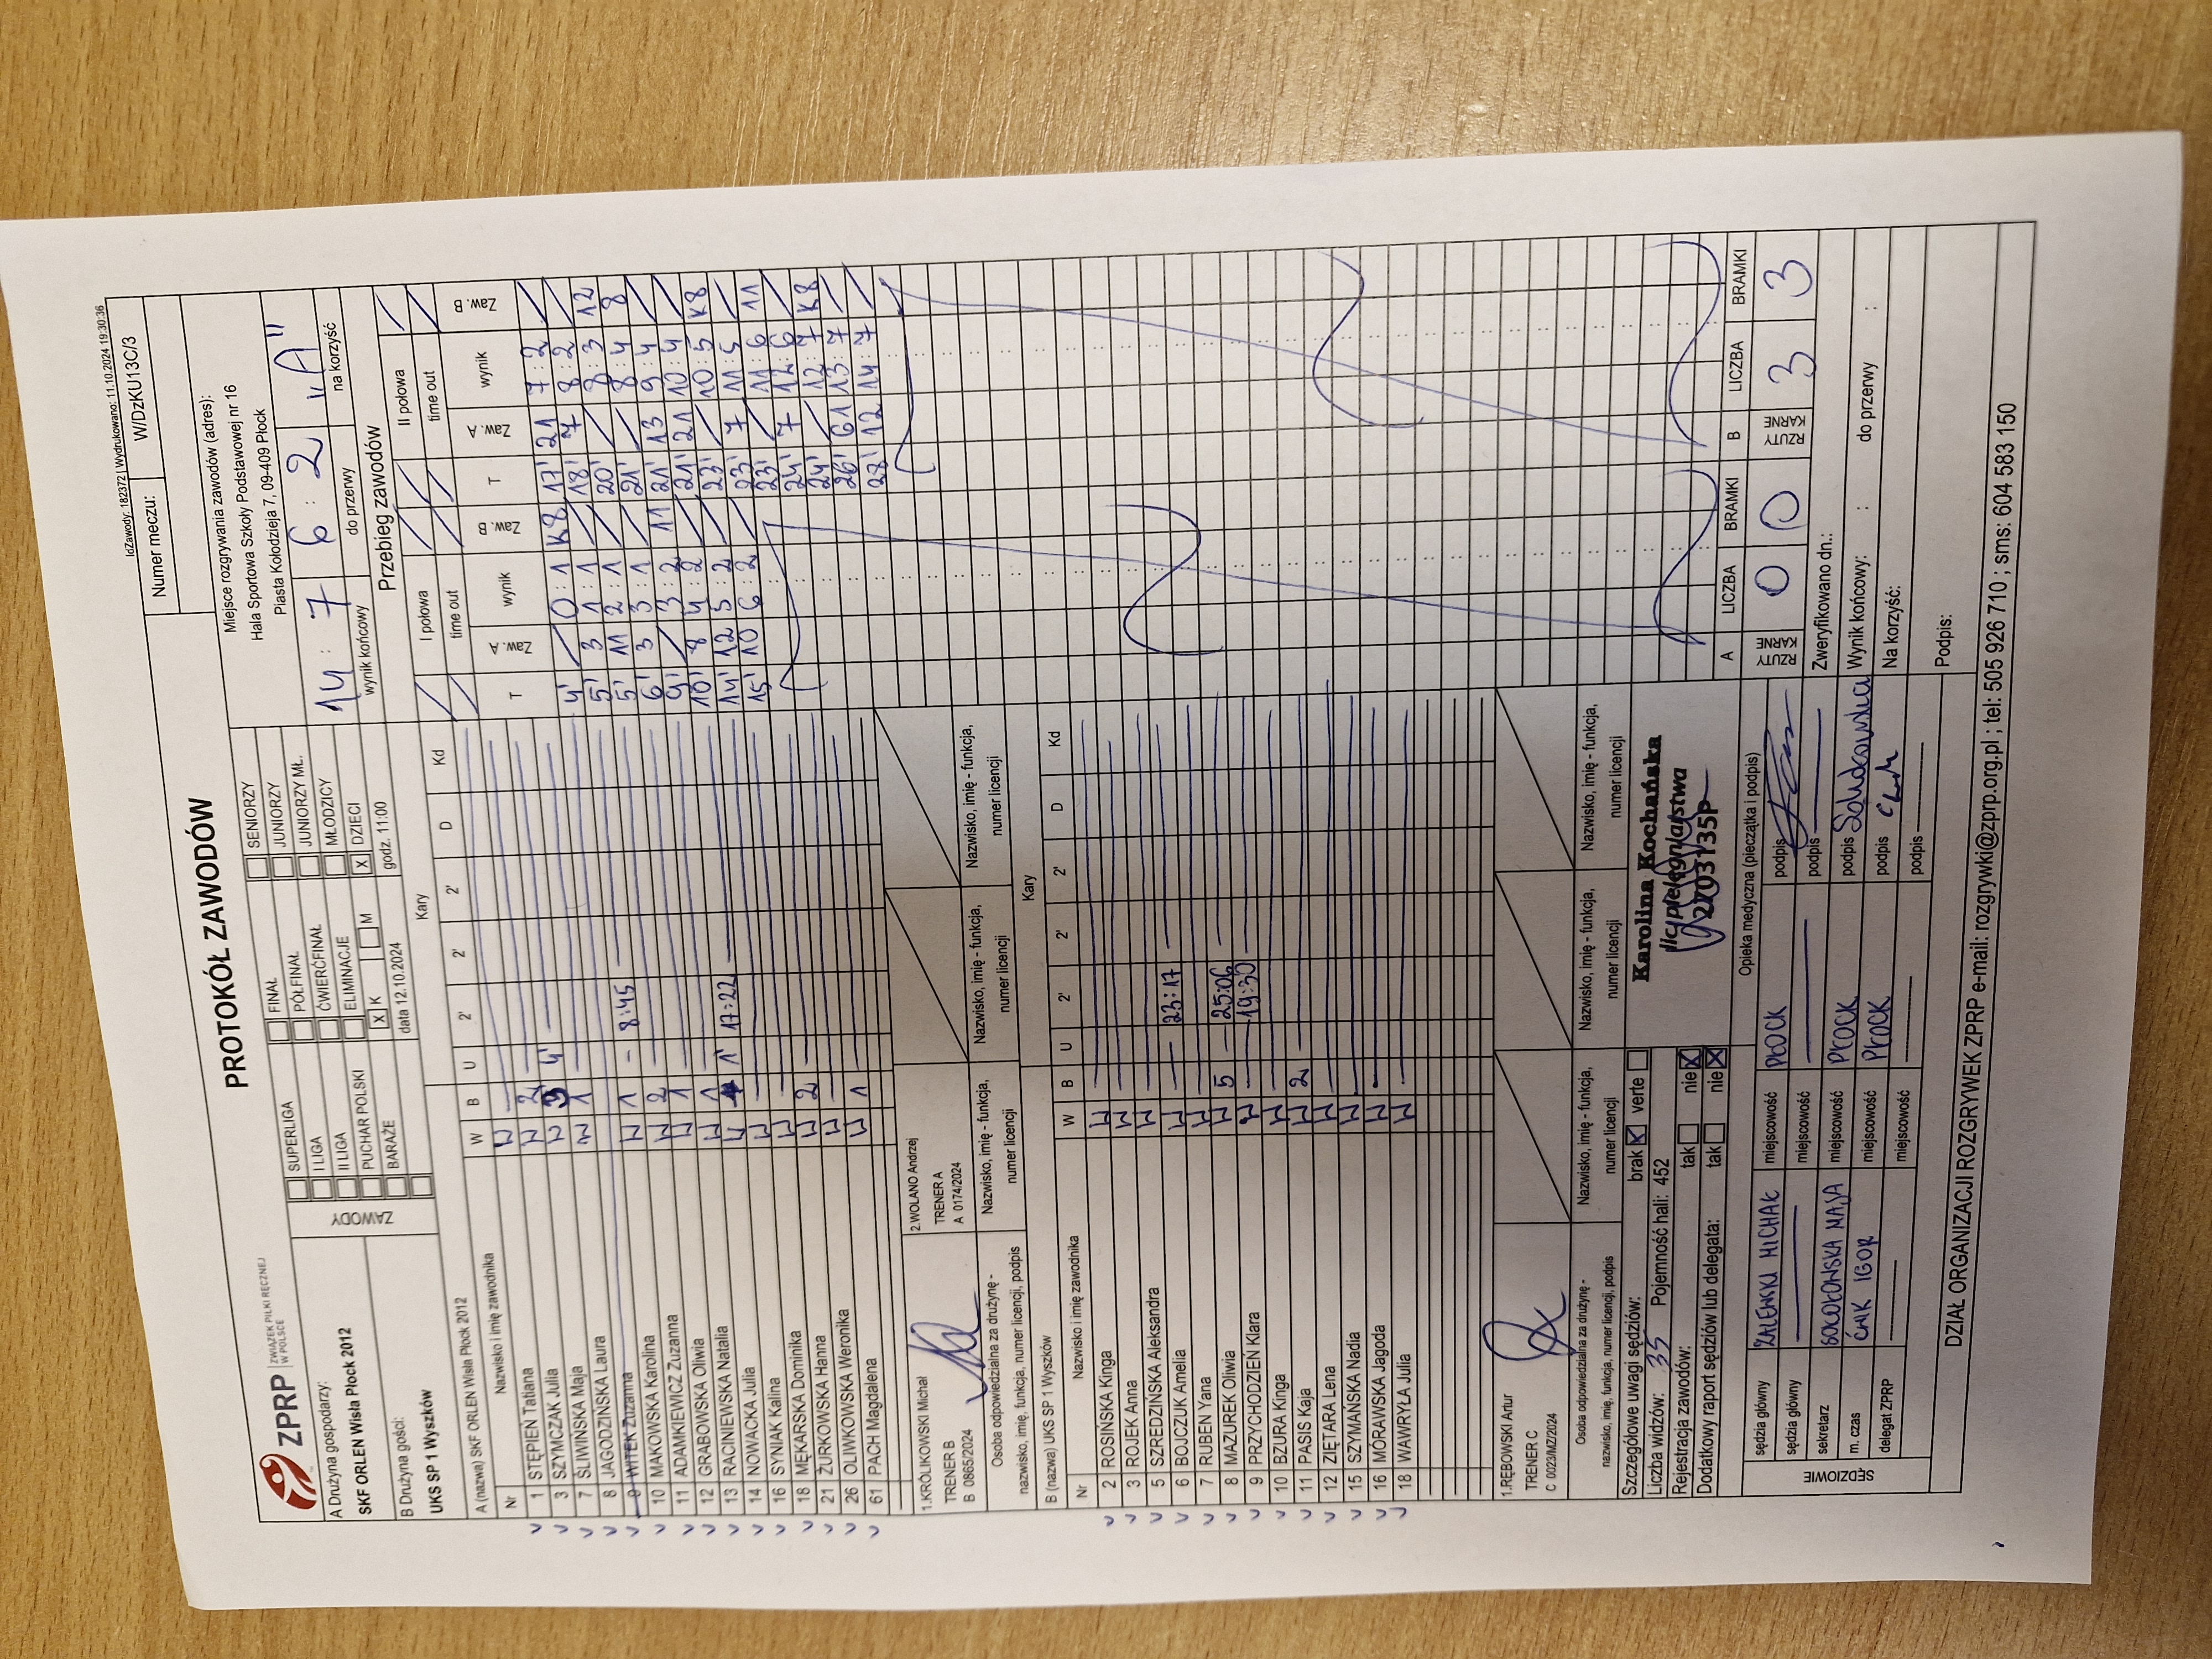 IdZawody: 182372 | Wydrukowano: 11.10.2024 19:30:36
PROTOKÓŁ ZAWODÓW
Numer meczu: W/DzKU13C/3
ZPRP ZWIĄZEK PIŁKI RĘCZNEJ W POLSCE
A Drużyna gospodarzy:
SKF ORLEN Wisła Płock 2012
B Drużyna gości:
UKS SP 1 Wyszków
ZAWODY
SUPERLIGA
I LIGA
II LIGA
PUCHAR POLSKI
BARAŻE
FINAŁ
PÓŁFINAŁ
ĆWIERĆFINAŁ
ELIMINACJE
X K M
data 12.10.2024
SENIORZY
JUNIORZY
JUNIORZY MŁ.
MŁODZICY
X DZIECI
godz. 11:00
Miejsce rozgrywania zawodów (adres):
Hala Sportowa Szkoły Podstawowej nr 16
Piasta Kołodzieja 7, 09-409 Płock
14 : 7 6 : 2 "A"
wynik końcowy do przerwy na korzyść
A (nazwa) SKF ORLEN Wisła Płock 2012 Kary
Nr Nazwisko i imię zawodnika W B U 2' 2' 2' D Kd
1 STĘPIEŃ Tatiana W
3 SZYMCZAK Julia W 2
7 ŚLIWIŃSKA Maja W 3 4'
8 JAGODZIŃSKA Laura W 1
9 WITEK Zuzanna
10 MAKOWSKA Karolina W 1 - 8:45
11 ADAMKIEWICZ Zuzanna W 2
12 GRABOWSKA Oliwia W 1
13 RACINIEWSKA Natalia W 1
14 NOWACKA Julia W 1' 17:22
16 SYNIAK Kalina W
18 MĘKARSKA Dominika W
21 ŻURKOWSKA Hanna W 2
26 OLIWKOWSKA Weronika W
61 PACH Magdalena W 1
1.KRÓLIKOWSKI Michał
TRENER B
B 0865/2024
2.WOLANO Andrzej
TRENER A
A 0174/2024
Osoba odpowiedzialna za drużynę -
nazwisko, imię, funkcja, numer licencji, podpis
Nazwisko, imię - funkcja,
numer licencji
Nazwisko, imię - funkcja,
numer licencji
Nazwisko, imię - funkcja,
numer licencji
B (nazwa) UKS SP 1 Wyszków Kary
Nr Nazwisko i imię zawodnika W B U 2' 2' 2' D Kd
2 ROSIŃSKA Kinga W
3 ROJEK Anna W
5 SZREDZIŃSKA Aleksandra W
6 BOJCZUK Amelia W 23:17
7 RUBEN Yana W
8 MAZUREK Oliwia W 5 25:06
9 PRZYCHODZIEŃ Klara W 19:30
10 BZURA Kinga W
11 PASIS Kaja W 2
12 ZIĘTARA Lena W
15 SZYMAŃSKA Nadia W
16 MÓRAWSKA Jagoda W
18 WAWRYŁA Julia W
1.RĘBOWSKI Artur
TRENER C
C 0023/MZ/2024
Osoba odpowiedzialna za drużynę -
nazwisko, imię, funkcja, numer licencji, podpis
Nazwisko, imię - funkcja,
numer licencji
Nazwisko, imię - funkcja,
numer licencji
Nazwisko, imię - funkcja,
numer licencji
Przebieg zawodów
I połowa II połowa
time out time out
T Zaw. A wynik Zaw. B T Zaw. A wynik Zaw. B
4' 0:1 K8 17' 21 7:2
5' 3 1:1 18' 7 8:2
5' 11 2:1 20' 8:3 12
6' 3 3:1 21' 8:4 8
9' 3:2 11 21' 13 9:4
10' 8 4:2 21' 21 10:4
14' 12 5:2 23' 10:5 K8
15' 10 6:2 23' 7 11:5
23' 11:6 11
24' 7 12:6
24' 12:7 K8
26' 61 13:7
28' 12 14:7
Szczegółowe uwagi sędziów: brak X verte
Liczba widzów: 35 Pojemność hali: 452
Rejestracja zawodów: tak nie X
Dodatkowy raport sędziów lub delegata: tak nie X
Karolina Kochańska
lic. pielęgniarstwa
2703135P
Opieka medyczna (pieczątka i podpis)
A RZUTY KARNE LICZBA 0 BRAMKI 0
B RZUTY KARNE LICZBA 3 BRAMKI 3
SĘDZIOWIE
sędzia główny ZALEWSKI MICHAŁ miejscowość PŁOCK podpis
sędzia główny miejscowość podpis
sekretarz SOKOŁOWSKA MAJA miejscowość PŁOCK podpis Sokołowska
m. czas ĆWIK IGOR miejscowość PŁOCK podpis Ćwik
delegat ZPRP miejscowość podpis
Zweryfikowano dn.:
Wynik końcowy: : do przerwy :
Na korzyść:
Podpis:
DZIAŁ ORGANIZACJI ROZGRYWEK ZPRP e-mail: rozgrywki@zprp.org.pl ; tel: 505 926 710 ; sms: 604 583 150